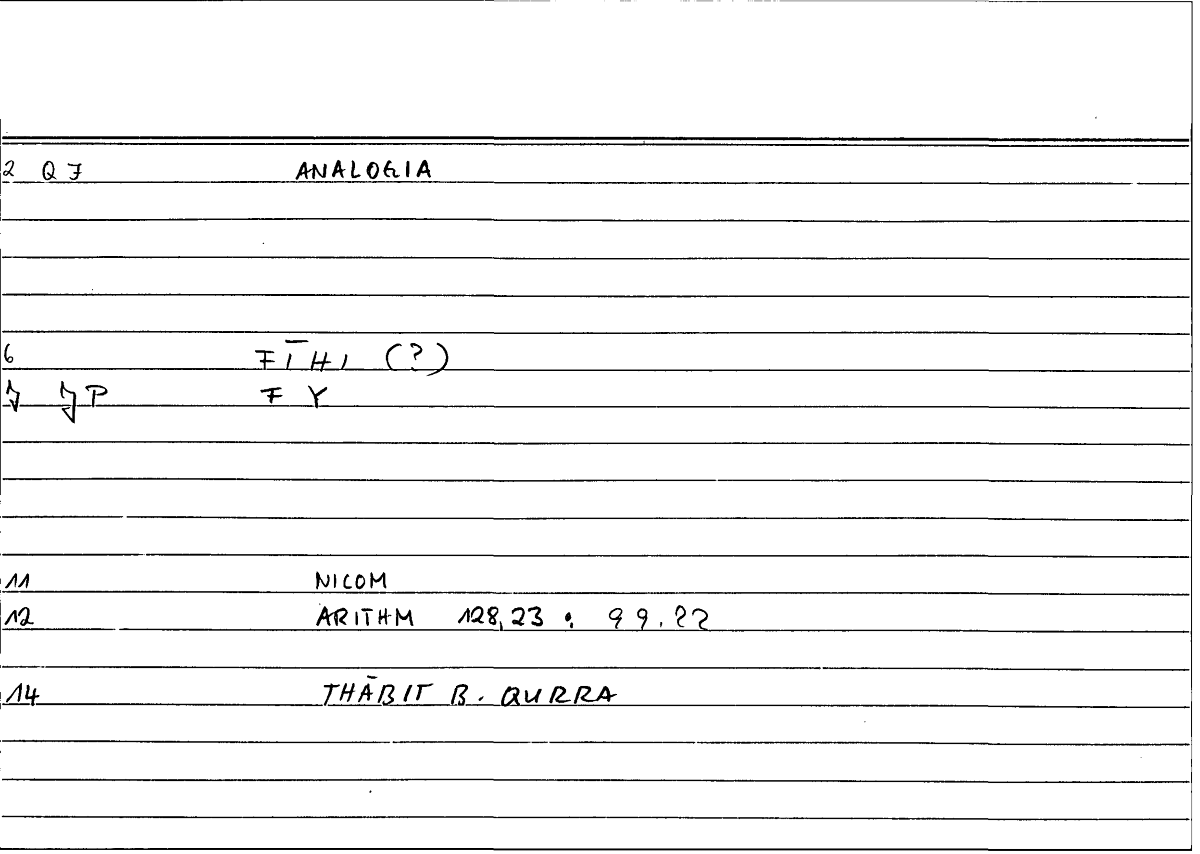 2 QF ANALOGIA
6 FĪHI (?)
P F Y
11 NICOM
12 ARITHM 128,23 : 99.22
14 THĀBIT B. QURRA